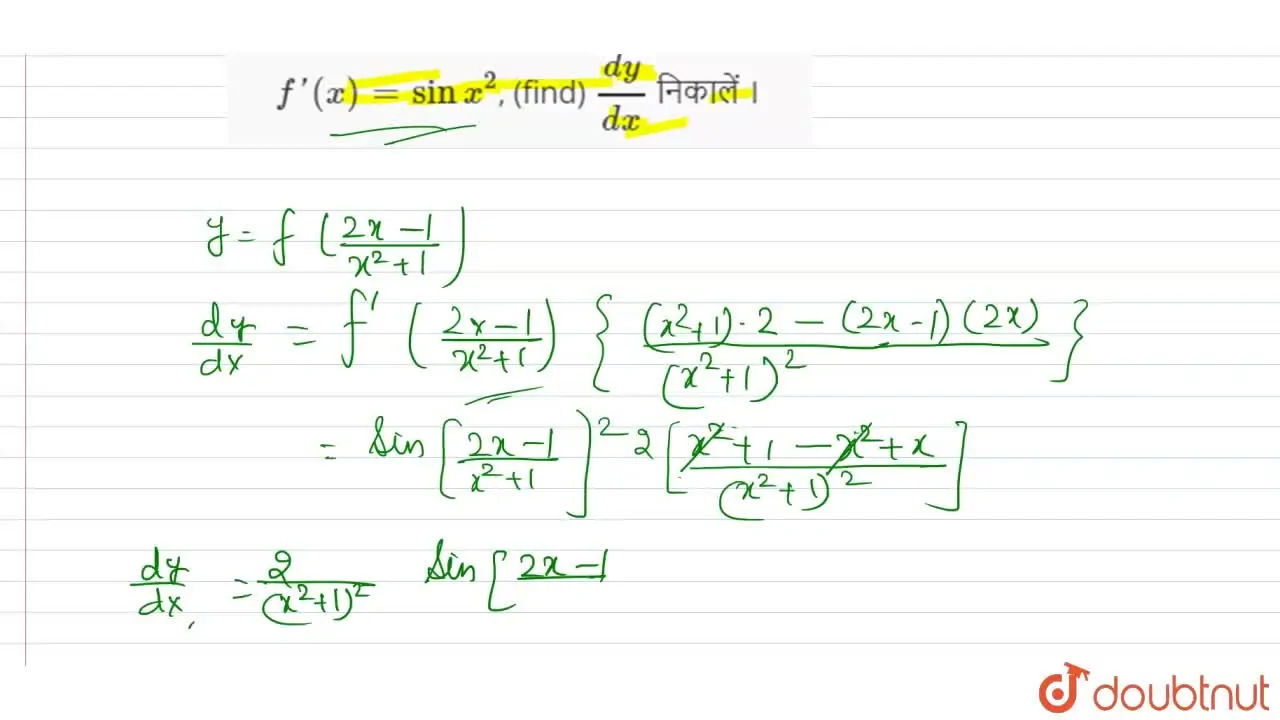 f'(x) = sin x², (find) dy/dx निकालें ।
y = f ( (2x - 1)/(x² + 1) )
dy/dx = f' ( (2x - 1)/(x² + 1) ) { ((x² + 1) · 2 - (2x - 1) (2x))/(x² + 1)² }
= Sin [ (2x - 1)/(x² + 1) ]² 2 [ (x² + 1 - x² + x)/(x² + 1)² ]
dy/dx = 2/(x² + 1)² Sin [ 2x - 1
doubtnut